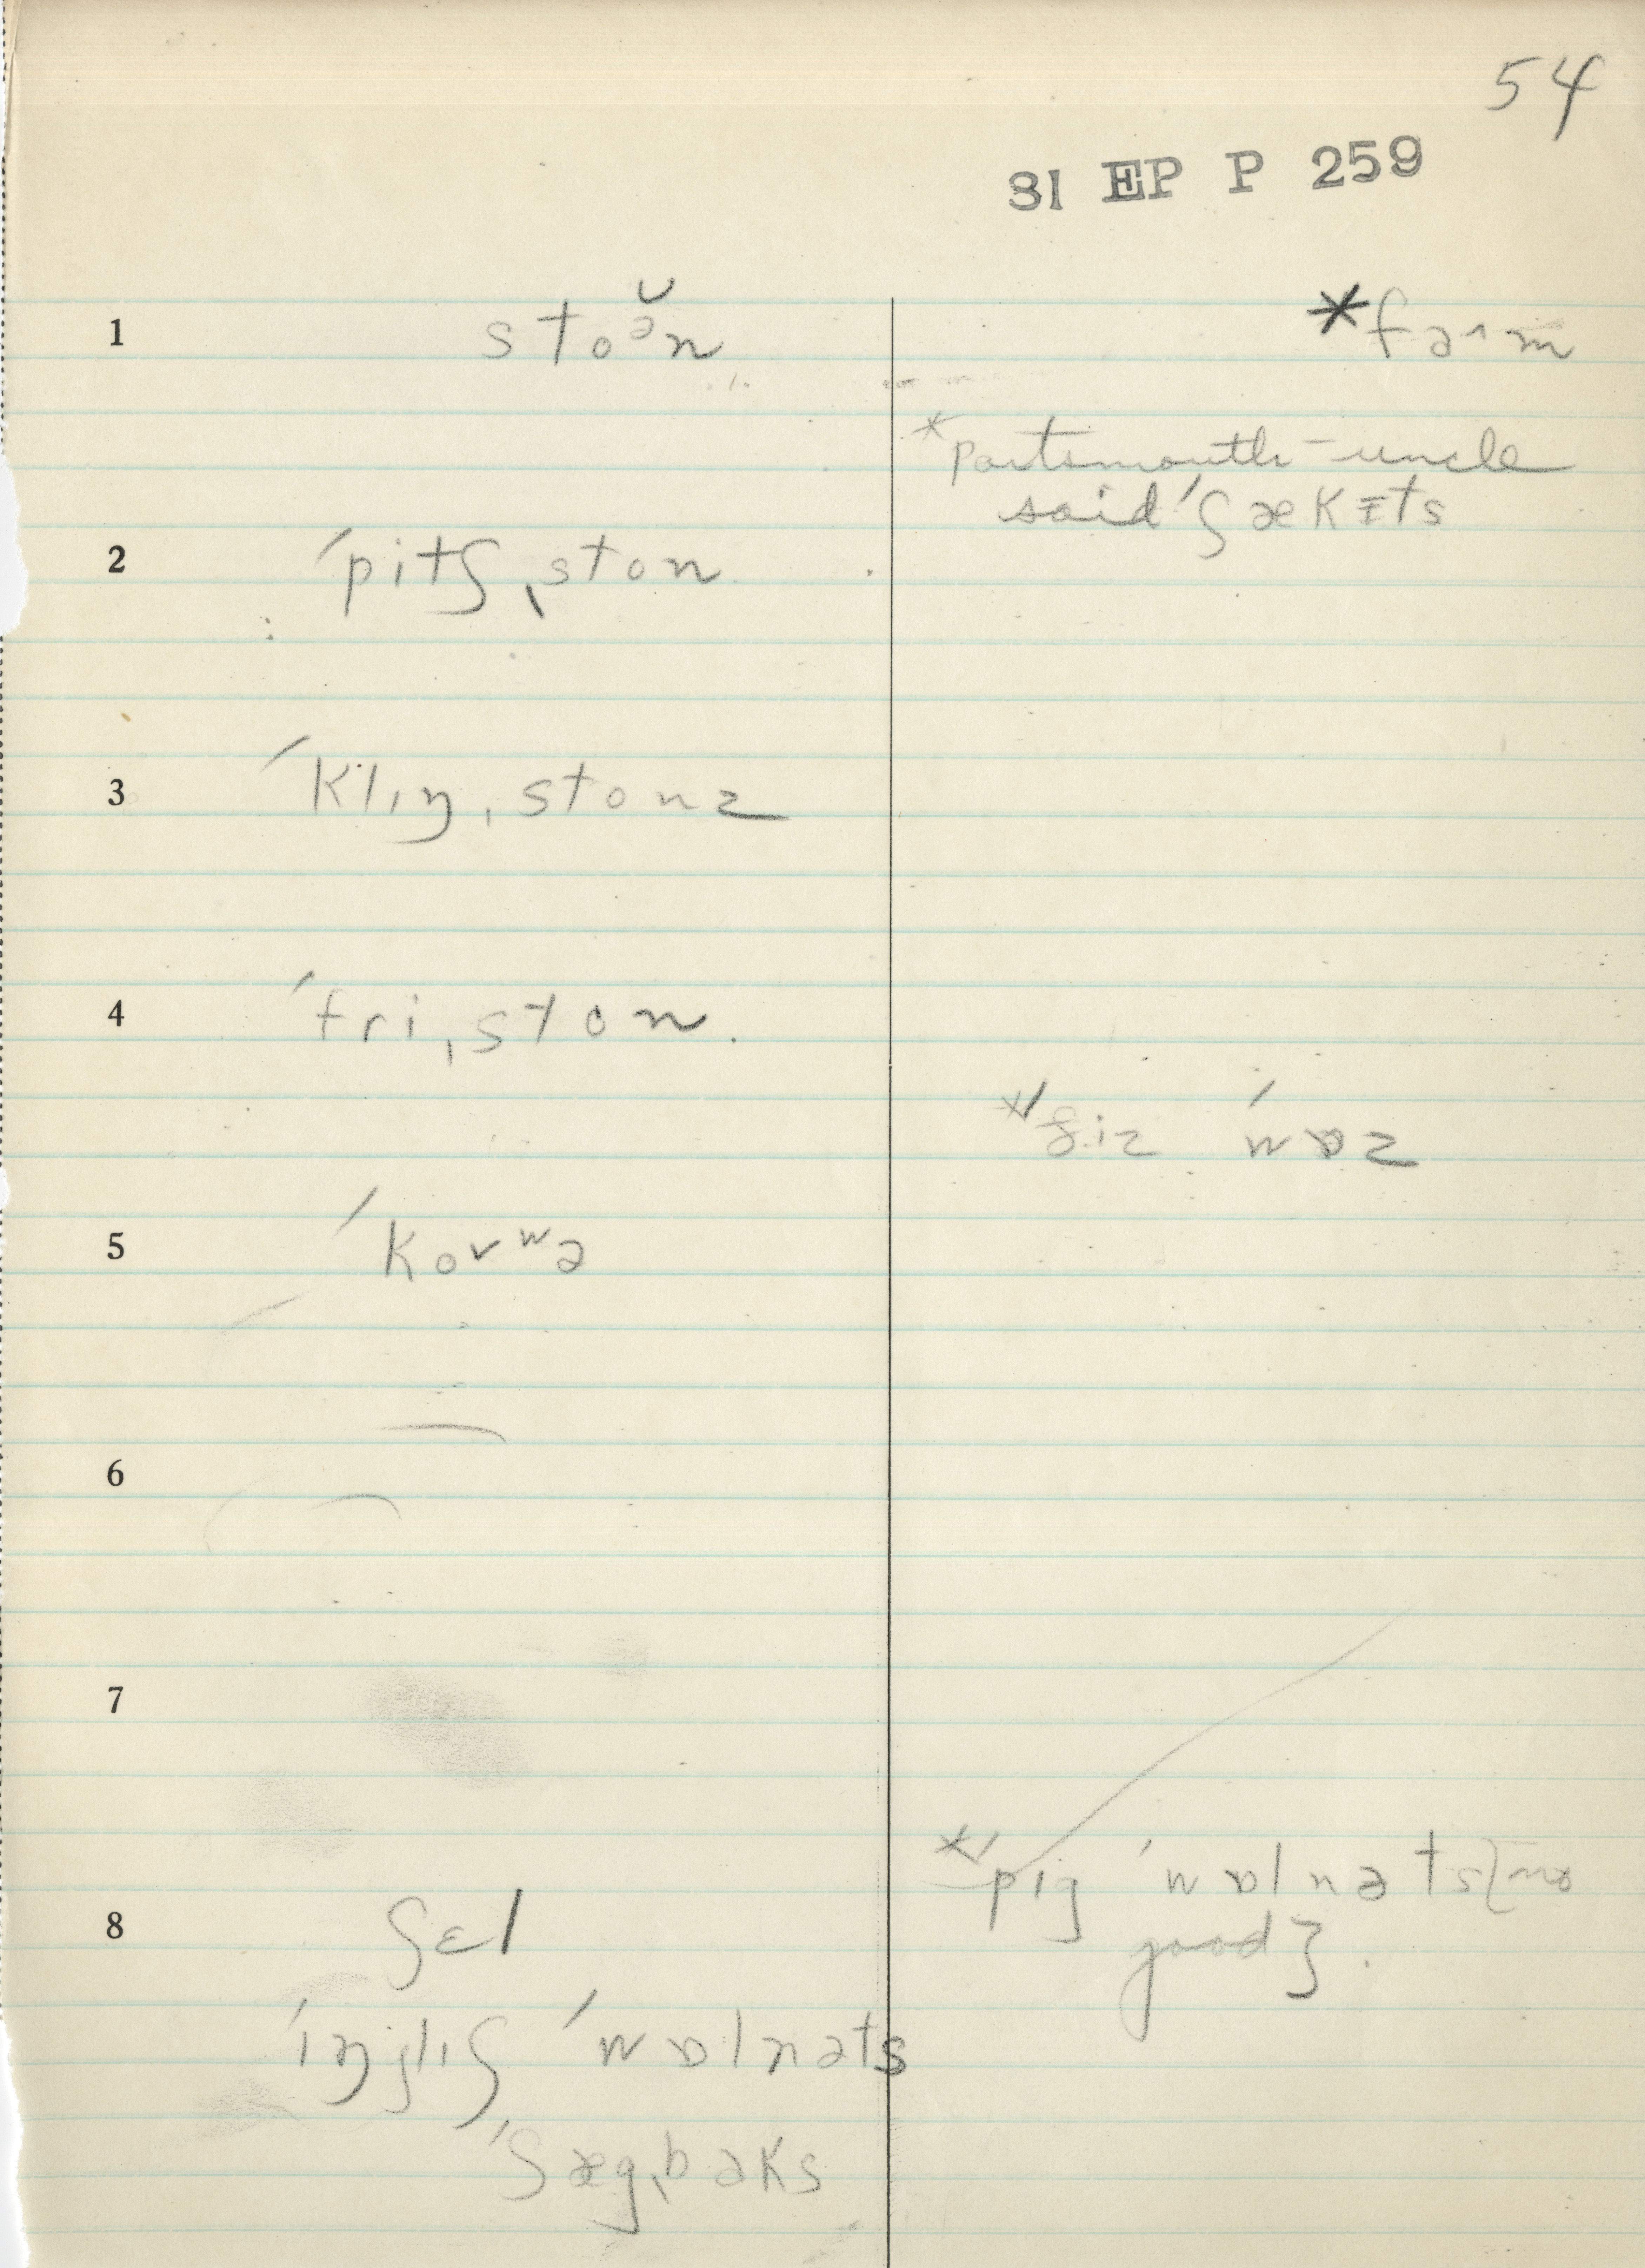 54
31 EP P 259
1 stoə̆n *faˑm
*Portsmouth - uncle
said ˈʃækɪts
2 ˈpitʃˌston
3 ˈklɪŋˌstonz
4 ˈfriˌston.
*ʃiz ˈwɒz
5 ˈkovʷə
6
7
*ˈpɪg ˈwɒlnəts {no
good}.
8 ʃɛl
ˈɪŋglɪʃ ˈwɒlnəts
ˈʃægˌbaks